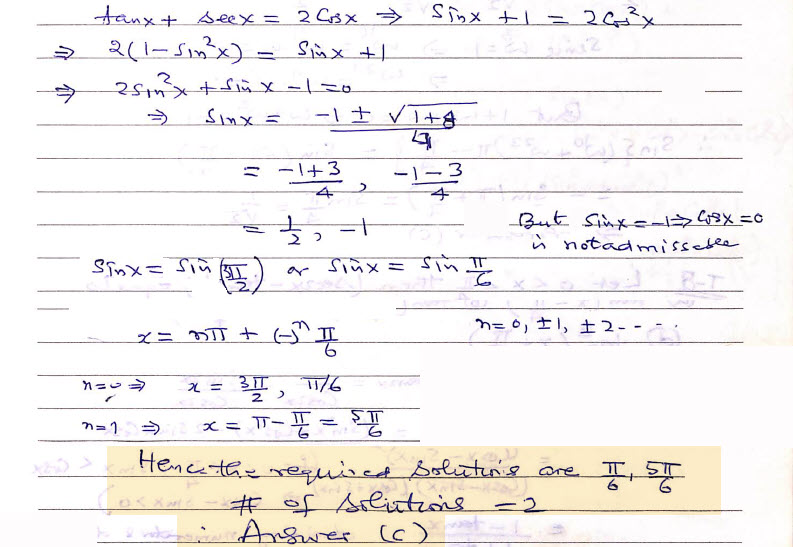 tanx + secx = 2Cosx ⇒ Sinx + 1 = 2Cos²x
⇒ 2(1-Sin²x) = Sinx + 1
⇒ 2Sin²x + Sinx - 1 = 0
⇒ Sinx = (-1 ± √(1+8))/4
= (-1+3)/4 , (-1-3)/4
= 1/2 , -1
But Sinx = -1 ⇒ Cosx = 0
is not admisseble
Sinx = Sin(3π/2) or Sinx = Sin π/6
x = nπ + (-)ⁿ π/6
n = 0, ±1, ±2 - - - .
n = 0 ⇒ x = 3π/2 , π/6
n = 1 ⇒ x = π - π/6 = 5π/6
Hence the required solutions are π/6, 5π/6
# of solutions = 2
∴ Answer (C)